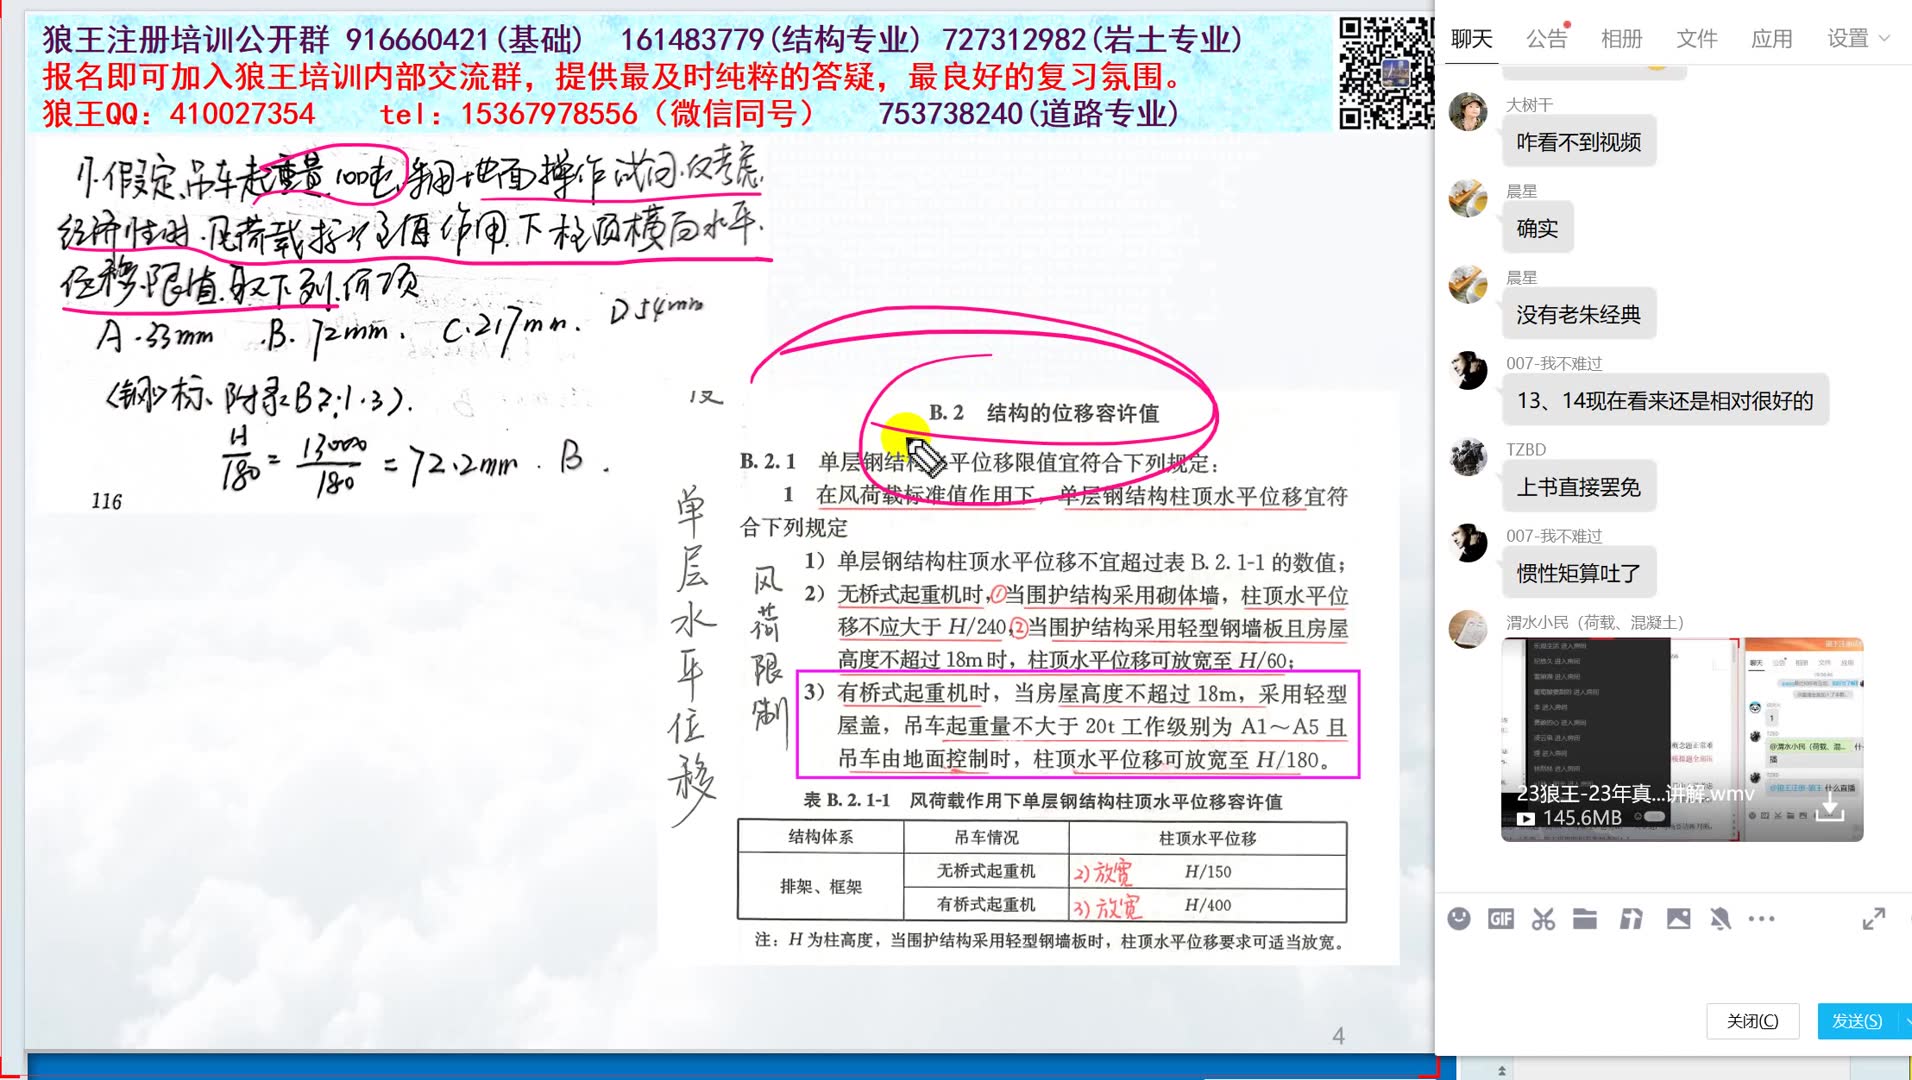 狼王注册培训公开群 916660421(基础) 161483779(结构专业) 727312982(岩土专业)
报名即可加入狼王培训内部交流群，提供最及时纯粹的答疑，最良好的复习氛围。
狼王QQ：410027354 tel：15367978556（微信同号） 753738240(道路专业)
假定,吊车起重量100t,采用地面操作,试问,仅考虑
经济性时,风荷载标准值作用下柱顶横向水平
位移限值,取下列何项
A.33mm B.72mm. C.217mm. D54mm
《钢》标、附录B2.1.3).
H/180 = 13000/180 = 72.2mm. B.
116
单层水平位移
风荷限制
B.2 结构的位移容许值
B.2.1 单层钢结构水平位移限值宜符合下列规定：
1 在风荷载标准值作用下，单层钢结构柱顶水平位移宜符
合下列规定
1）单层钢结构柱顶水平位移不宜超过表 B.2.1-1 的数值；
2）无桥式起重机时，①当围护结构采用砌体墙，柱顶水平位
移不应大于 H/240，②当围护结构采用轻型钢墙板且房屋
高度不超过 18m 时，柱顶水平位移可放宽至 H/60；
3）有桥式起重机时，当房屋高度不超过 18m，采用轻型
屋盖，吊车起重量不大于 20t 工作级别为 A1～A5 且
吊车由地面控制时，柱顶水平位移可放宽至 H/180。
表 B.2.1-1 风荷载作用下单层钢结构柱顶水平位移容许值
结构体系 吊车情况 柱顶水平位移
排架、框架 无桥式起重机 2)放宽 H/150
有桥式起重机 3)放宽 H/400
注：H 为柱高度，当围护结构采用轻型钢墙板时，柱顶水平位移要求可适当放宽。
4
聊天 公告 相册 文件 应用 设置
大树干
咋看不到视频
晨星
确实
晨星
没有老朱经典
007-我不难过
13、14现在看来还是相对很好的
TZBD
上书直接罢免
007-我不难过
惯性矩算吐了
渭水小民（荷载、混凝土）
23狼王-23年真...讲解.wmv
145.6MB
GIF
关闭(C) 发送(S)